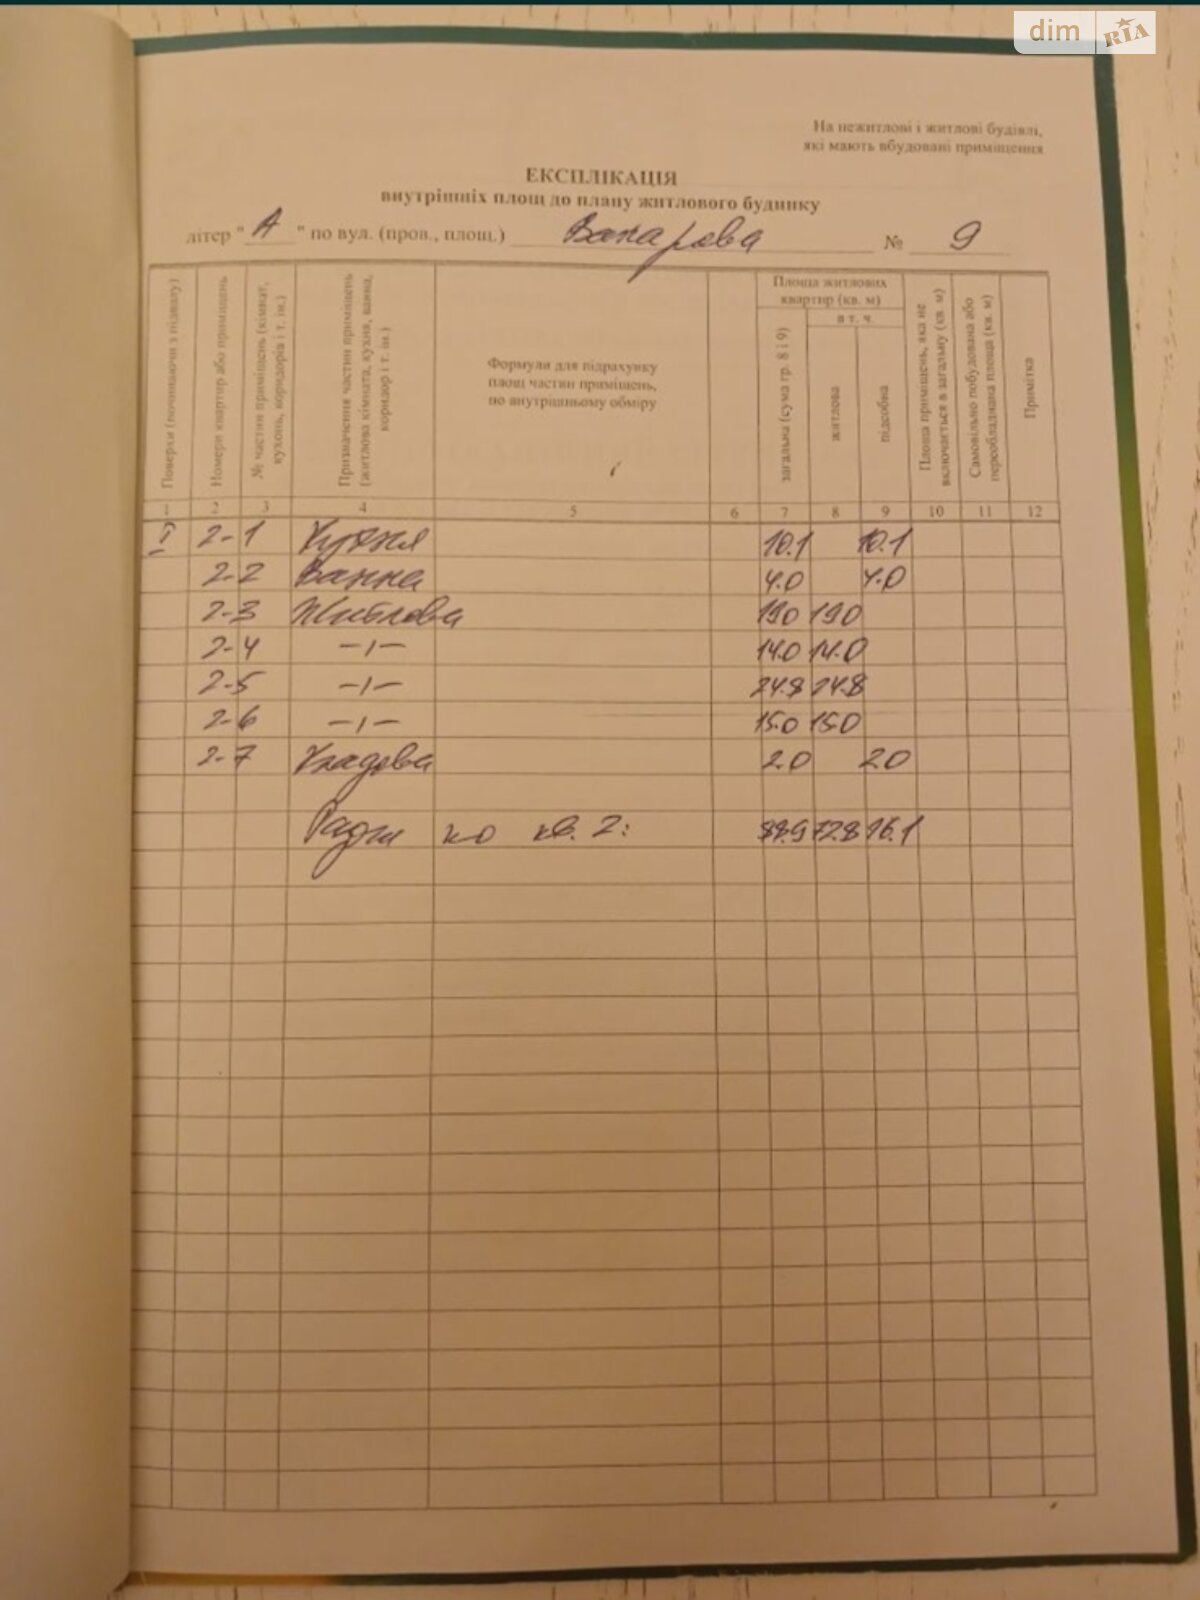 dim RIA
На нежитлові і житлові будівлі,
які мають вбудовані приміщення
ЕКСПЛІКАЦІЯ
внутрішніх площ до плану житлового будинку
літер "А" по вул. (пров., площ.) Вакарова № 9
Поверхи (починаючи з підвалу)
Номери квартир або приміщень
№ частин приміщень (кімнат, кухонь, коридорів і т. ін.)
Призначення частин приміщень (житлова кімната, кухня, ванна, коридор і т. ін.)
Формули для підрахунку
площ частин приміщень,
по внутрішньому обміру
Площа житлових
квартир (кв. м)
в т. ч.
загальна (сума гр. 8 і 9)
житлова
підсобна
Площа приміщень, яка не включається в загальну (кв. м)
Самовільно побудована або переобладнана площа (кв. м)
Примітка
1 2 3 4 5 6 7 8 9 10 11 12
I 2-1 Кухня 10.1 10.1
2-2 Ванна 4.0 4.0
2-3 Житлова 19.0 19.0
2-4 —ı— 14.0 14.0
2-5 —ı— 24.8 24.8
2-6 —ı— 15.0 15.0
2-7 Кладова 2.0 2.0
по кв. 2: 88.9 72.8 16.1